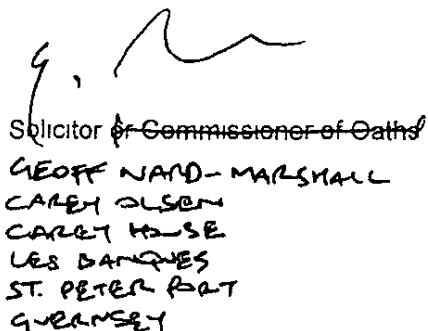 Solicitor or Commissioner of Oaths
GEOFF WARD-MARSHALL
CAREY OLSEN
CAREY HOUSE
LES BANQUES
ST. PETER PORT
GUERNSEY